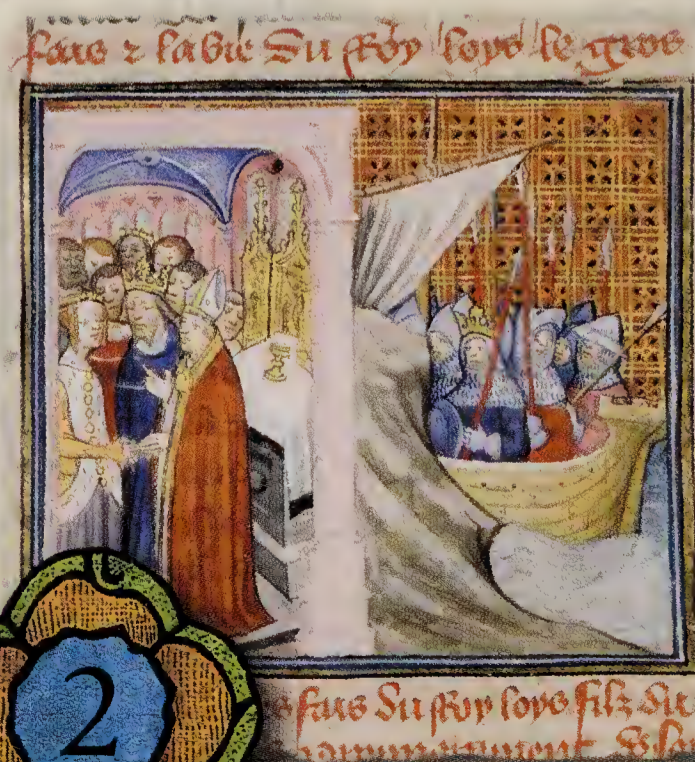 fais ⁊ la vie Du Roy loys le gros
2
fais Du Roy loys filz du